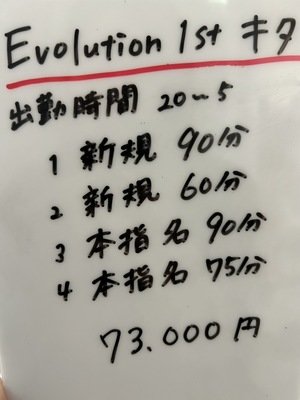 Evolution 1st キタ
出勤時間 20〜5
1 新規 90分
2 新規 60分
3 本指名 90分
4 本指名 75分
73.000円